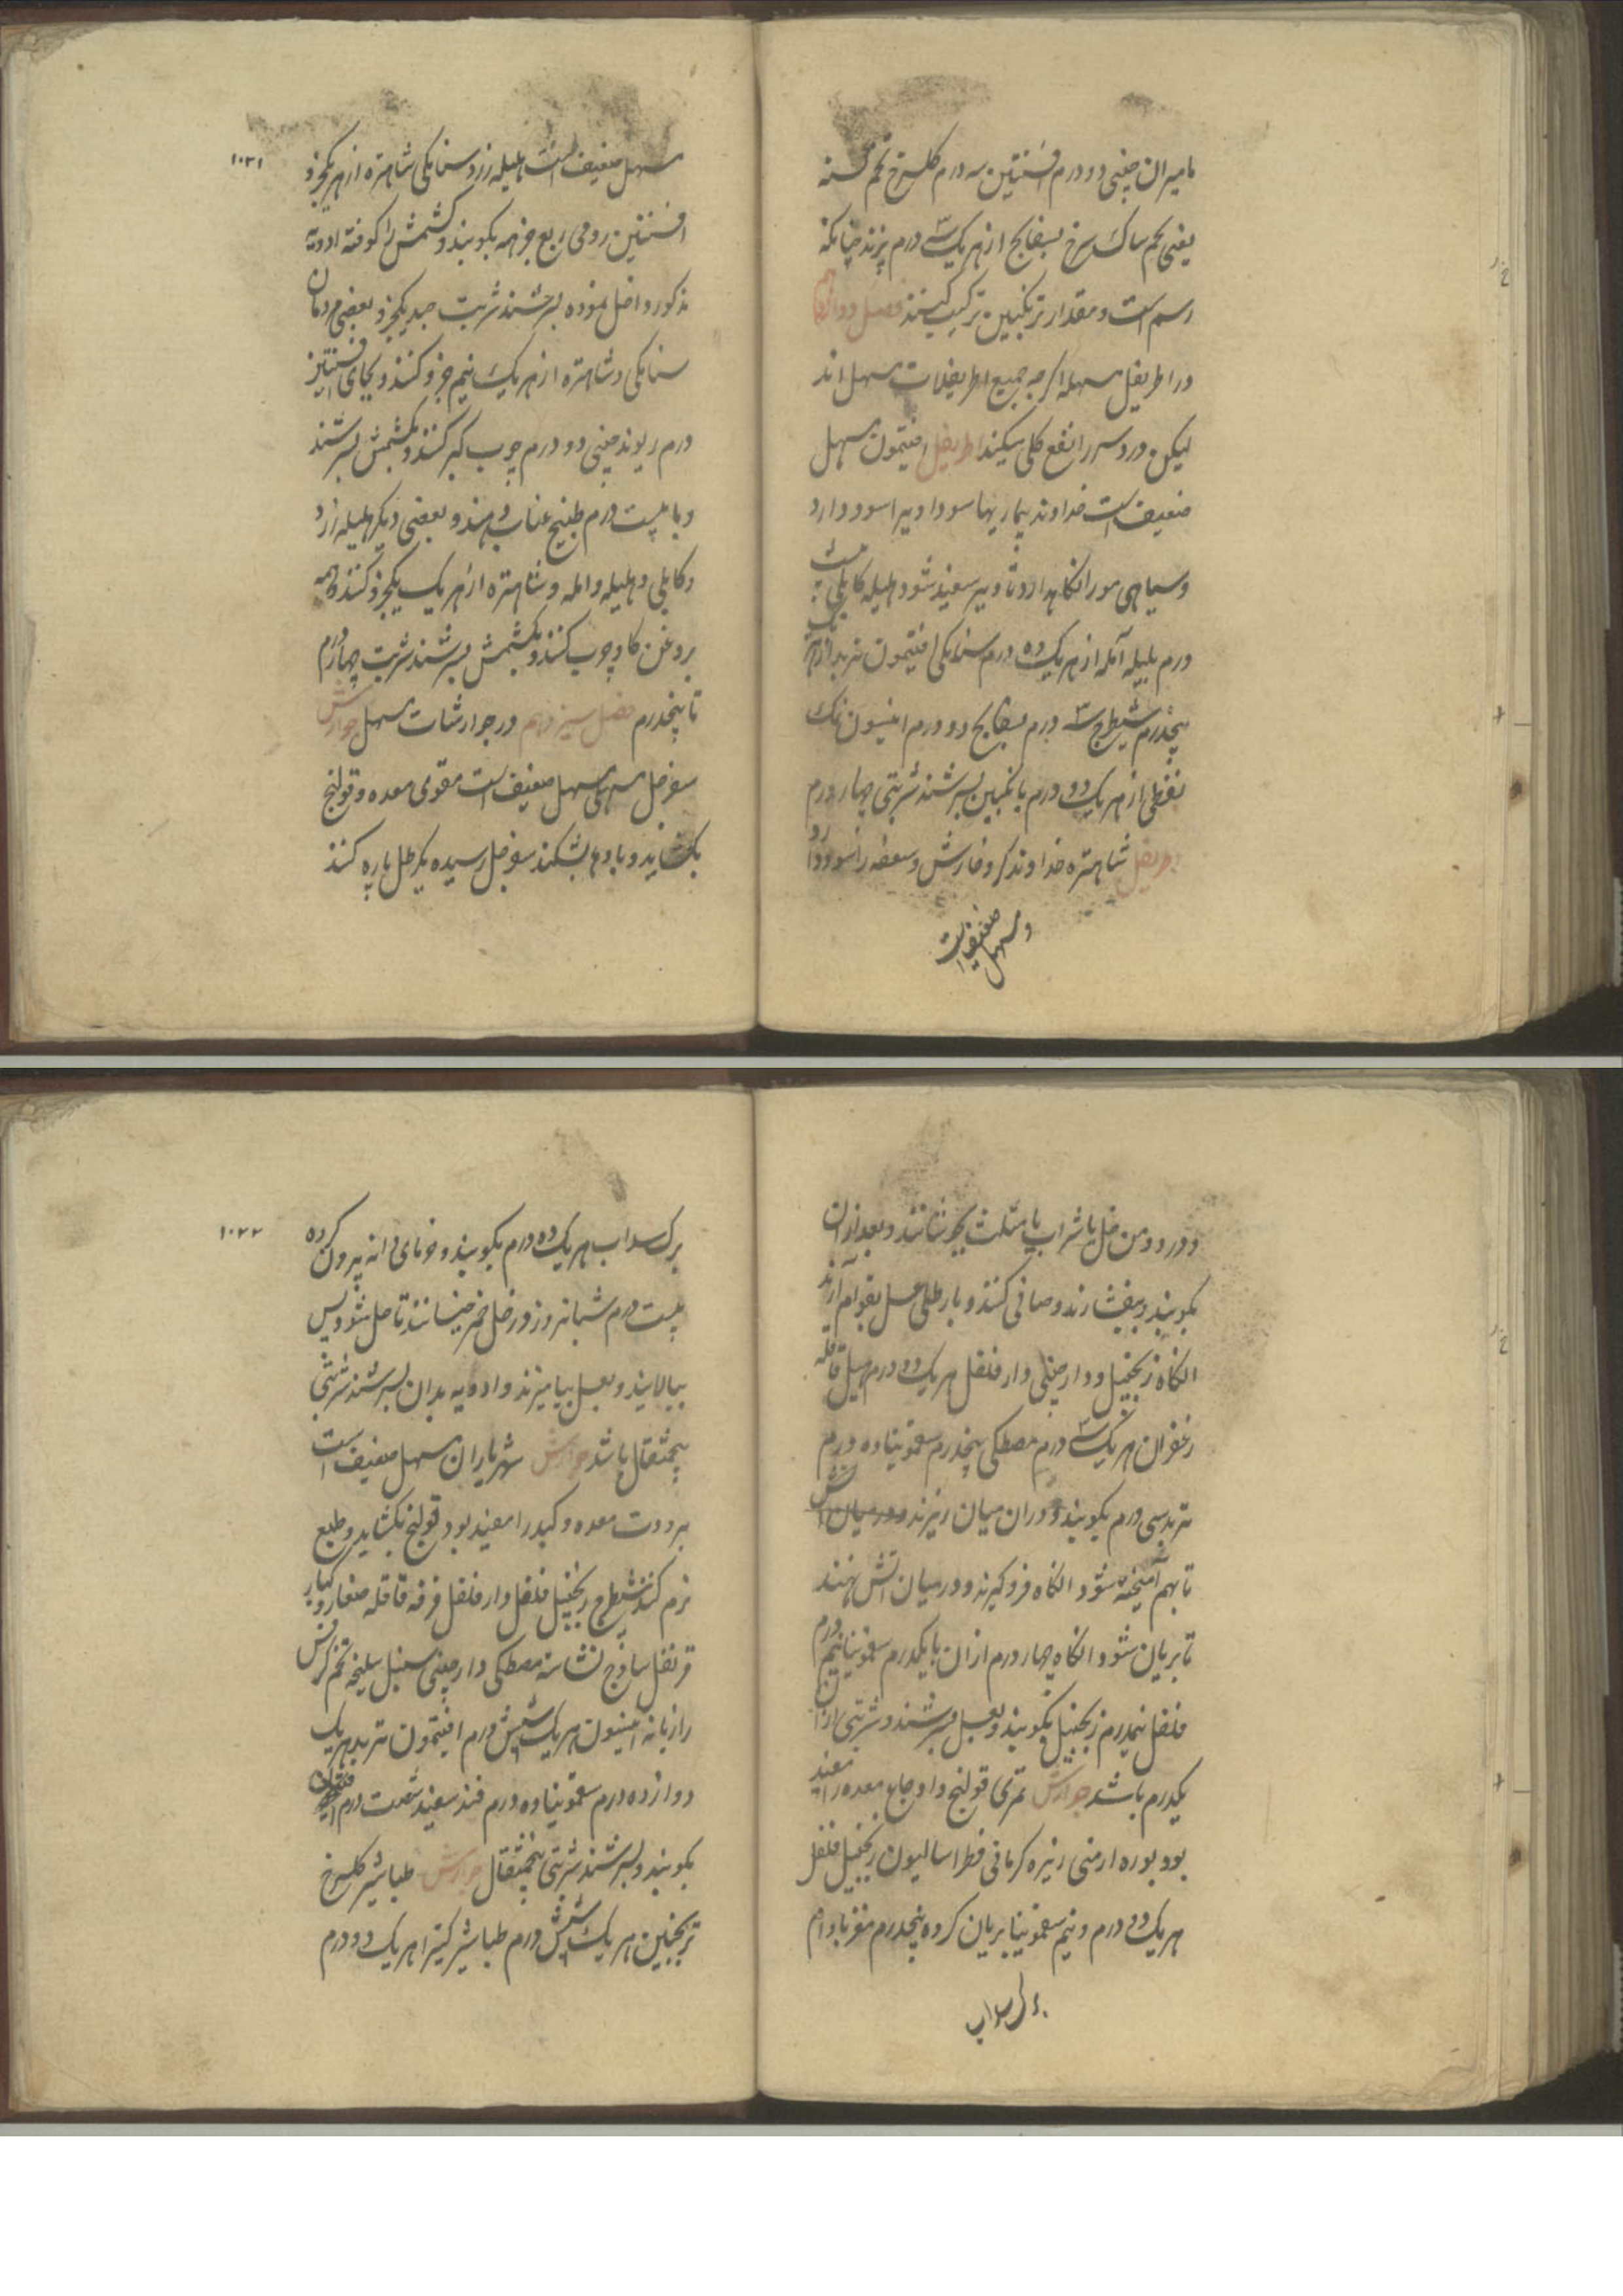 مامیران چینی دو درم افسنتین سه درم گلسرخ تخم
یعنی تخم ساک سرخ بسفایج از هر یک سه درم پزند چنانکه
رسم است و مقدار ترنکبین ترکیب کنند فصل دوازدهم
در اطریفل مسهله اگر چه جمیع اطریفلات مسهل اند
لیکن درد سر را نفع کلی میکند اطریفل افتیمون مسهل
ضعیف است خداوند بیماریها سودا و پیرا سود دارد
و سیاهی مو را نگاه دارد تا دیر سفید شود هلیله کابلی بیست
درم بلیله آمله از هر یک ده درم سنا مکی افتیمون تربد از هر یک
پنجدرم شیطرج سه درم بسفایج دو درم انیسون نمک
نفطی از هر یک دو درم بانکبین بسرشند شربتی چهار درم
اطریفل شاهتره خداوند کر و خارش و سعفه را سود دارد
و مسهل ضعیف است
۱۰۲۱
مسهل ضعیف است هلیله زرد سنا مکی شاهتره از هر یکجزو
افسنتین رومی ربع جزو همه بکوبند و کشمش را کوفته ادویه
مذکور داخل نموده بسرشند شربت صبر یکجزو بعضی مردمان
سنا مکی و شاهتره از هر یک نیم جزو کنند و بجای افسنتین
درم ریوند چینی دو درم چوب کبر کنند و بکشمش بسرشند
و با بیست درم طبیخ عناب دهند و بعضی دیگر هلیله زرد
و کابلی و بلیله و امله و شاهتره از هر یک یکجزو کنند و همه
بروغن کاو چرب کنند و بکشمش بسرشند شربت چهار درم
تا پنجدرم فصل سیزدهم در جوارشات مسهل جوارش
سفرجل مسهلی مسهل ضعیف است مقوی معده و قولنج
بکشاید و بادها بشکند سفرجل رسیده یکرطل پاره کنند
و در دو من خل یا شراب یا مثلث بجوشانند و بعد از آن
بکوبند و بیفشارند و صافی کنند و با رطلی عسل بقوام آرند
انکاه زنجبیل و دارچینی دار فلفل هر یک دو درم هیل قاقله
زعفران هر یک سه درم مصطکی پنجدرم سقمونیا ده درم
تربد سی درم بکوبند و در ان میان ریزند و در میان آتش
تا بهم آمیخته شود انکاه فرو کیرند و در میان آتش نهند
تا بریان شود انکاه چهار درم از ان با یکدرم سقمونیا نیم درم
فلفل نیمدرم زنجبیل بکوبند و بعسل بسرشند و شربتی از آن
یکدرم باشد جوارش تمری قولنج و اوجاع معده را مفید
بود بوره ارمنی زیره کرمانی فطراسالیون زنجبیل فلفل
هر یک دو درم و نیم سقمونیا بریان کرده پنجدرم مغز بادام
برک سداب
۱۰۲۲
برک سداب هر یک ده درم بکوبند و خرمای دانه بیرون کرده
بیست درم شبانروز در خل خمر خیسانند تا حل شود پس
بپالایند و بعسل بیامیزند و ادویه بدان بسرشند شربتی
پنجمثقال باشد جوارش شهریاران مسهل ضعیف است
برودت معده و کبد را مفید بود قولنج بکشاید و طبع
نرم کند شیطرج زنجبیل فلفل دار فلفل قرفه قاقله صغار و کبار
قرنفل ساذج نشاسته مصطکی دارچینی سنبل سلیخه تخم کرفس
رازیانه انیسون هر یک شش درم افتیمون تربد هر یک
دوازده درم سقمونیا ده درم قند سفید شصت درم
بکوبند و بسرشند شربتی پنجمثقال جوارش طباشیر گلسرخ
ترنجبین هر یک شش درم طباشیر کتیرا هر یک دو درم